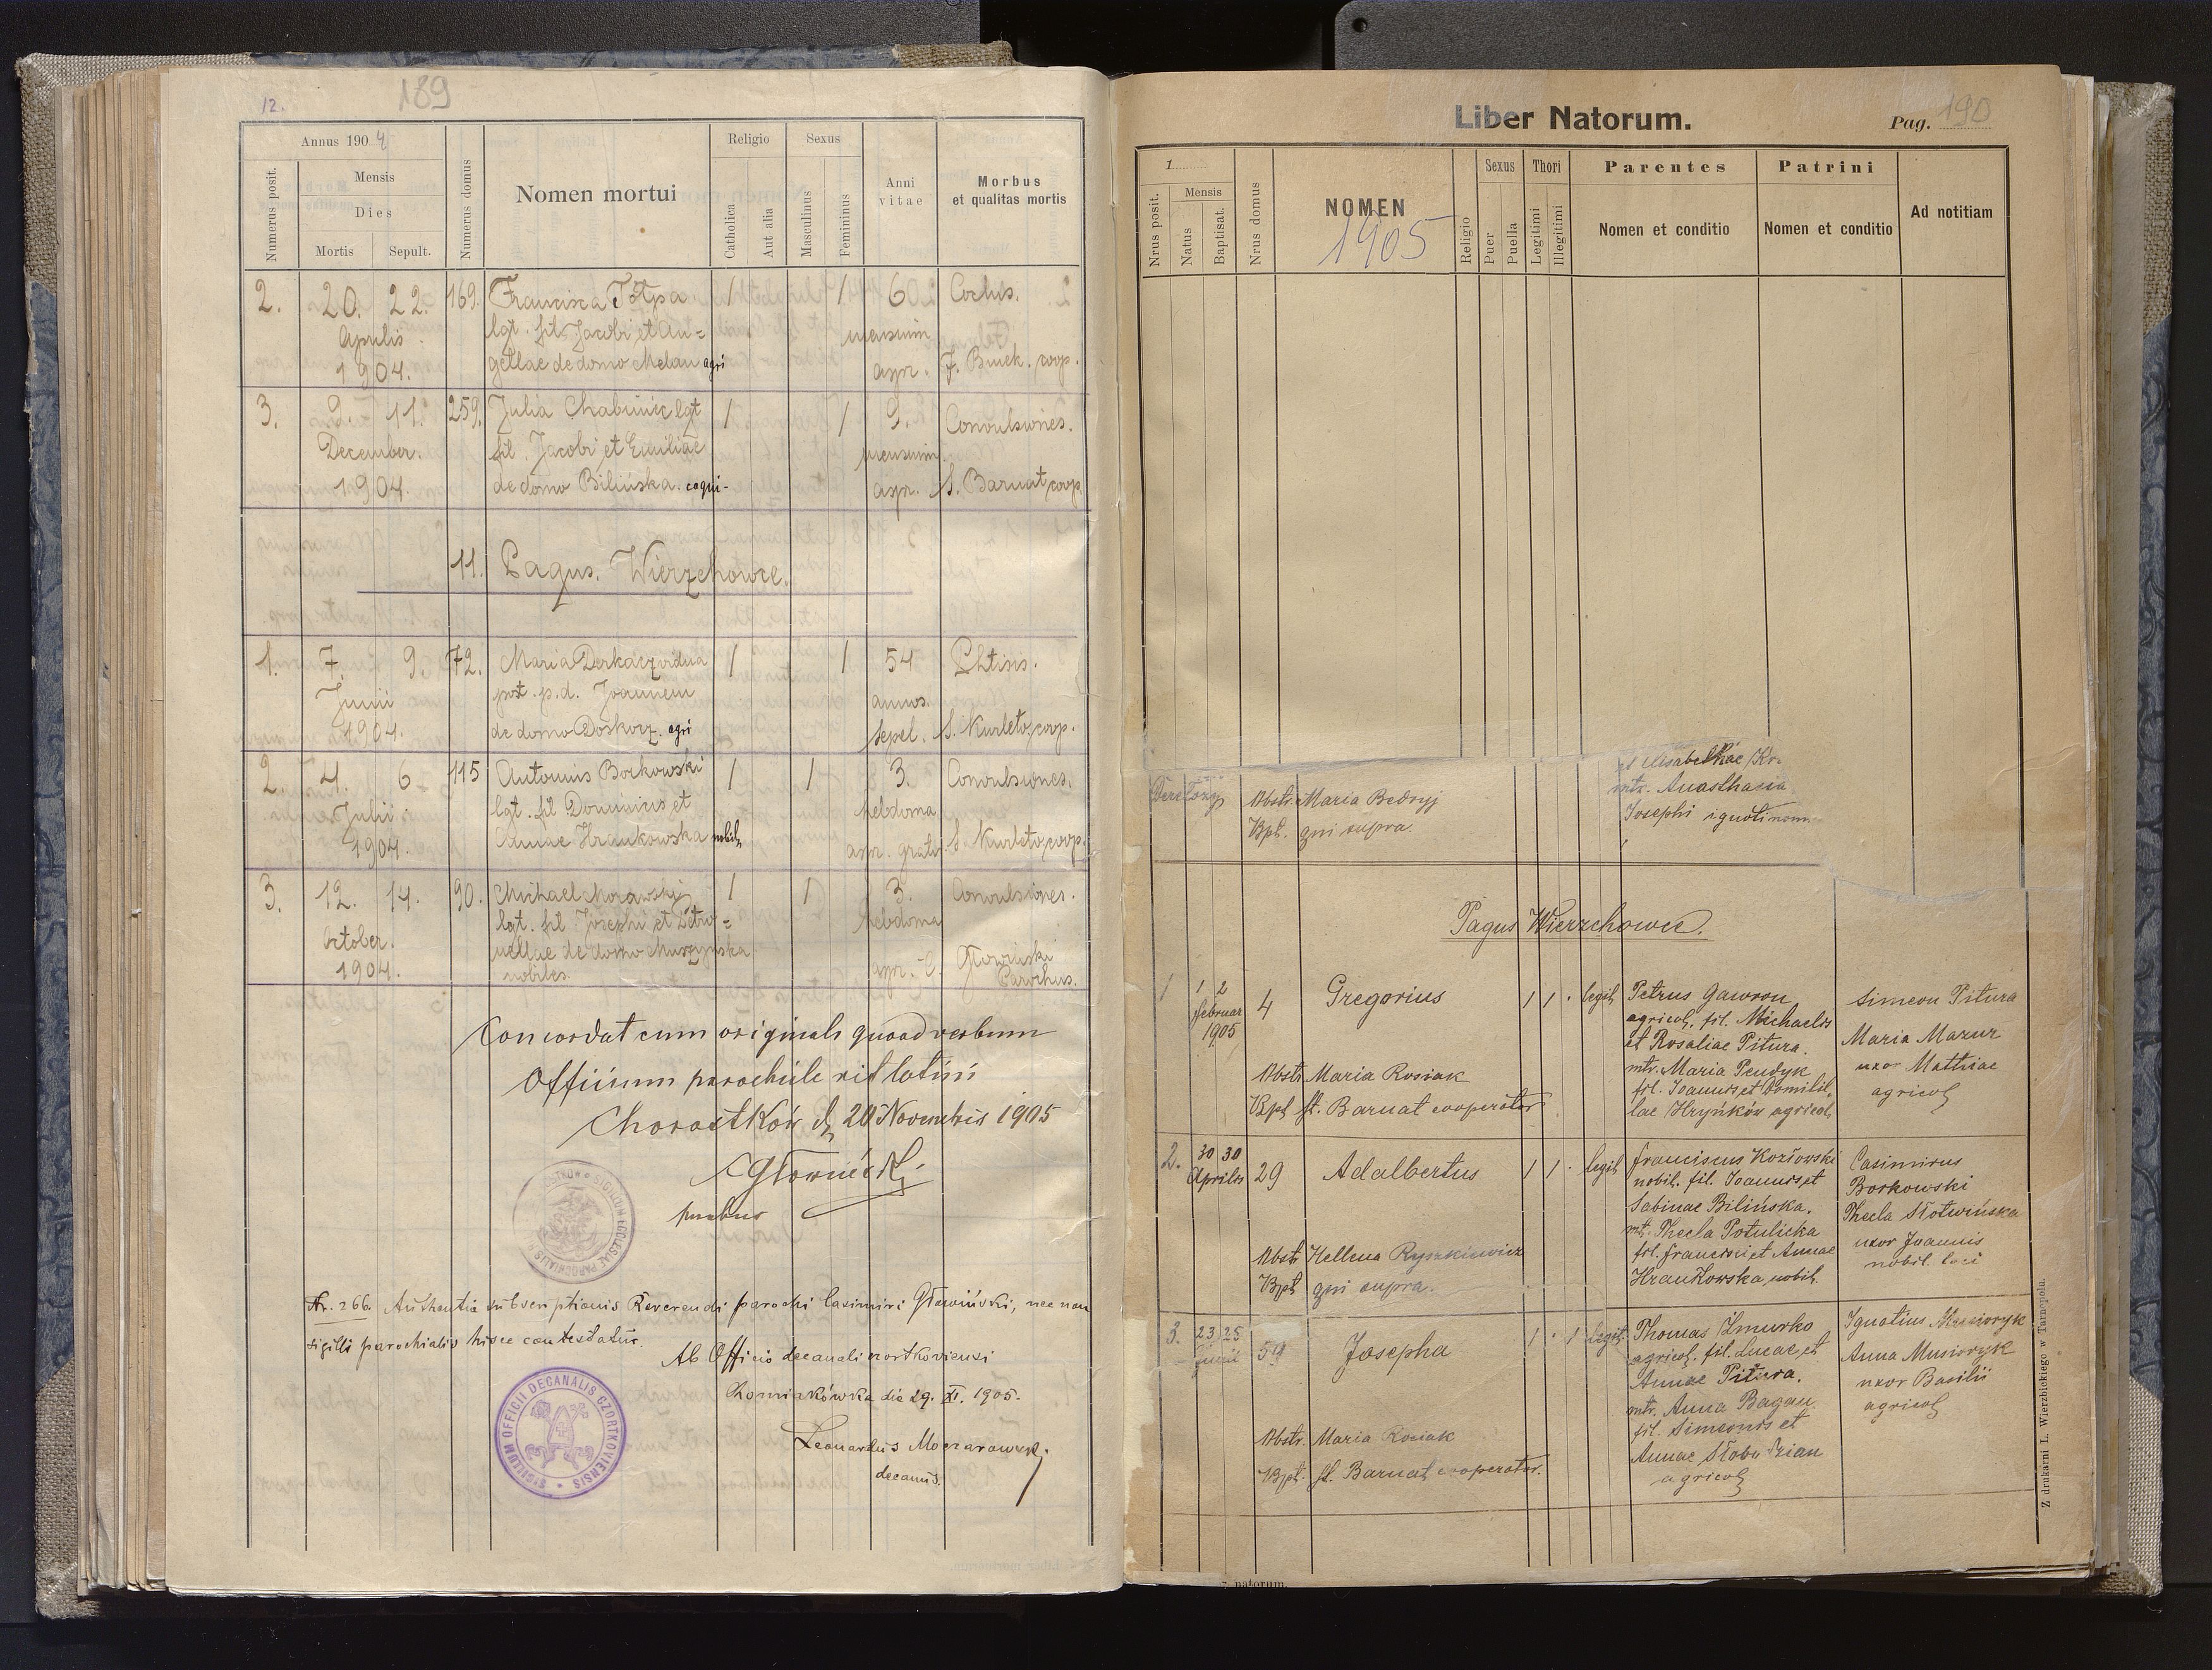 12.
189
Annus 1904
Numerus posit.
Mensis
Dies
Mortis
Sepult.
Numerus domus
Nomen mortui
Religio
Catholica
Aut alia
Sexus
Masculinus
Femininus
Anni
vitae
Morbus
et qualitas mortis
2. 20. 22. 169. Francisca 1 1 6
Aprilis lgt. fil. Jacobi et An= mensium
1904. gellae de domo Melan agri apr. coop.
3. 9. 11. 259. Julia lgt 1 1 9. Convulsiones.
December. fil. Jacobi et Emiliae mensium
1904. de domo Bilińska. apr. S. Barnat coop.
11. Pagus. Wierzchowce.
1. 7. 9. 72. Maria Derkacz vidua 1 1 54 Phtisis.
Junii post. p.d. Joannem annos.
1904. de domo agri sepel. S. Kurleto, coop.
2. 4. 6 115 Antonius Borkowski 1 1 3. Convulsiones.
Julii lgt. fil Dominicus et hebdoma
1904. Annae Hrankowska nobil. apr. gratis S. Kurleto, coop.
3. 12. 14. 90. Michael Morawski 1 1 3. Convulsiones.
October. lgt. fil Josephi et Petro= hebdoma
1904. nellae de domo Muszyńska
nobiles. apr. Głowiński
Parochus.
Concordat cum originali quoad verbum
Officium parochiale rit latini
Chorostków d. 20 Novembris 1905
CGłowiński
parochus
SIGILLUM ECCLESIAE PAROCHIALIS
Nr. 266. Authentia subscriptionis Reverendi parochi Casimiri Głowiński, nec non
sigilli parochialis hisce contestatur.
Ab Officio decanali czortkoviensi
Chomiakówka die 29. XI. 1905.
Leonardus
decanus.
SIGILLUM OFFICII DECANALIS CZORTKOVIENSIS
Liber Natorum.
Pag. 190
1
Nrus posit.
Mensis
Natus
Baptisat.
Nrus domus
NOMEN
1905
Religio
Sexus
Puer
Puella
Thori
Legitimi
Illegitimi
Parentes
Nomen et conditio
Patrini
Nomen et conditio
Ad notitiam
et Elisabethae Kr
mtr. Anasthasia
Obstr. Maria Bedryj
Josephi
Bpt. qui supra.
Pagus Wierzchowce.
1 1 2 4 Gregorius 1 1 . legit. Petrus Gawron Simeon Pitura
Februar agricol. fil. Michaelis
1905 et Rosaliae Pitura. Maria Mazur
Obstr Maria Rosiak mtr. Maria Pendyk uxor Matthiae
fil. Joannis et Domicil. agricol.
Bpt St. Barnat cooperator lae Hryńków agricol.
2. 30 30 29 Adalbertus 1 1 . legit. Franciscus Kozłowski Casimirus
Aprilis nobil. fil. Joannis et Borkowski
Sabinae Bilińska. Thecla Słotwińska
mtr. Thecla Potulicka uxor Joannis
Obstr Hellena Ryszkiewicz fil. Francisci et Annae nobil. loci
Bpt qui supra. Hrankowska nobil.
3. 23 25 59 Josepha 1 . 1 legit. Thomas Żmurko Ignatius Musioryk
Junii agricol. fil. Lucae et Anna Musioryk
Annae Pitura. uxor Basilii
mtr. Anna Bagan agricol.
Obstr. Maria Rosiak fil. Simeonis et
Bpt. St. Barnat cooperator. Annae Słobodzian
agricol.
Z drukarni L. Wierzbickiego w Tarnopolu.
natorum.